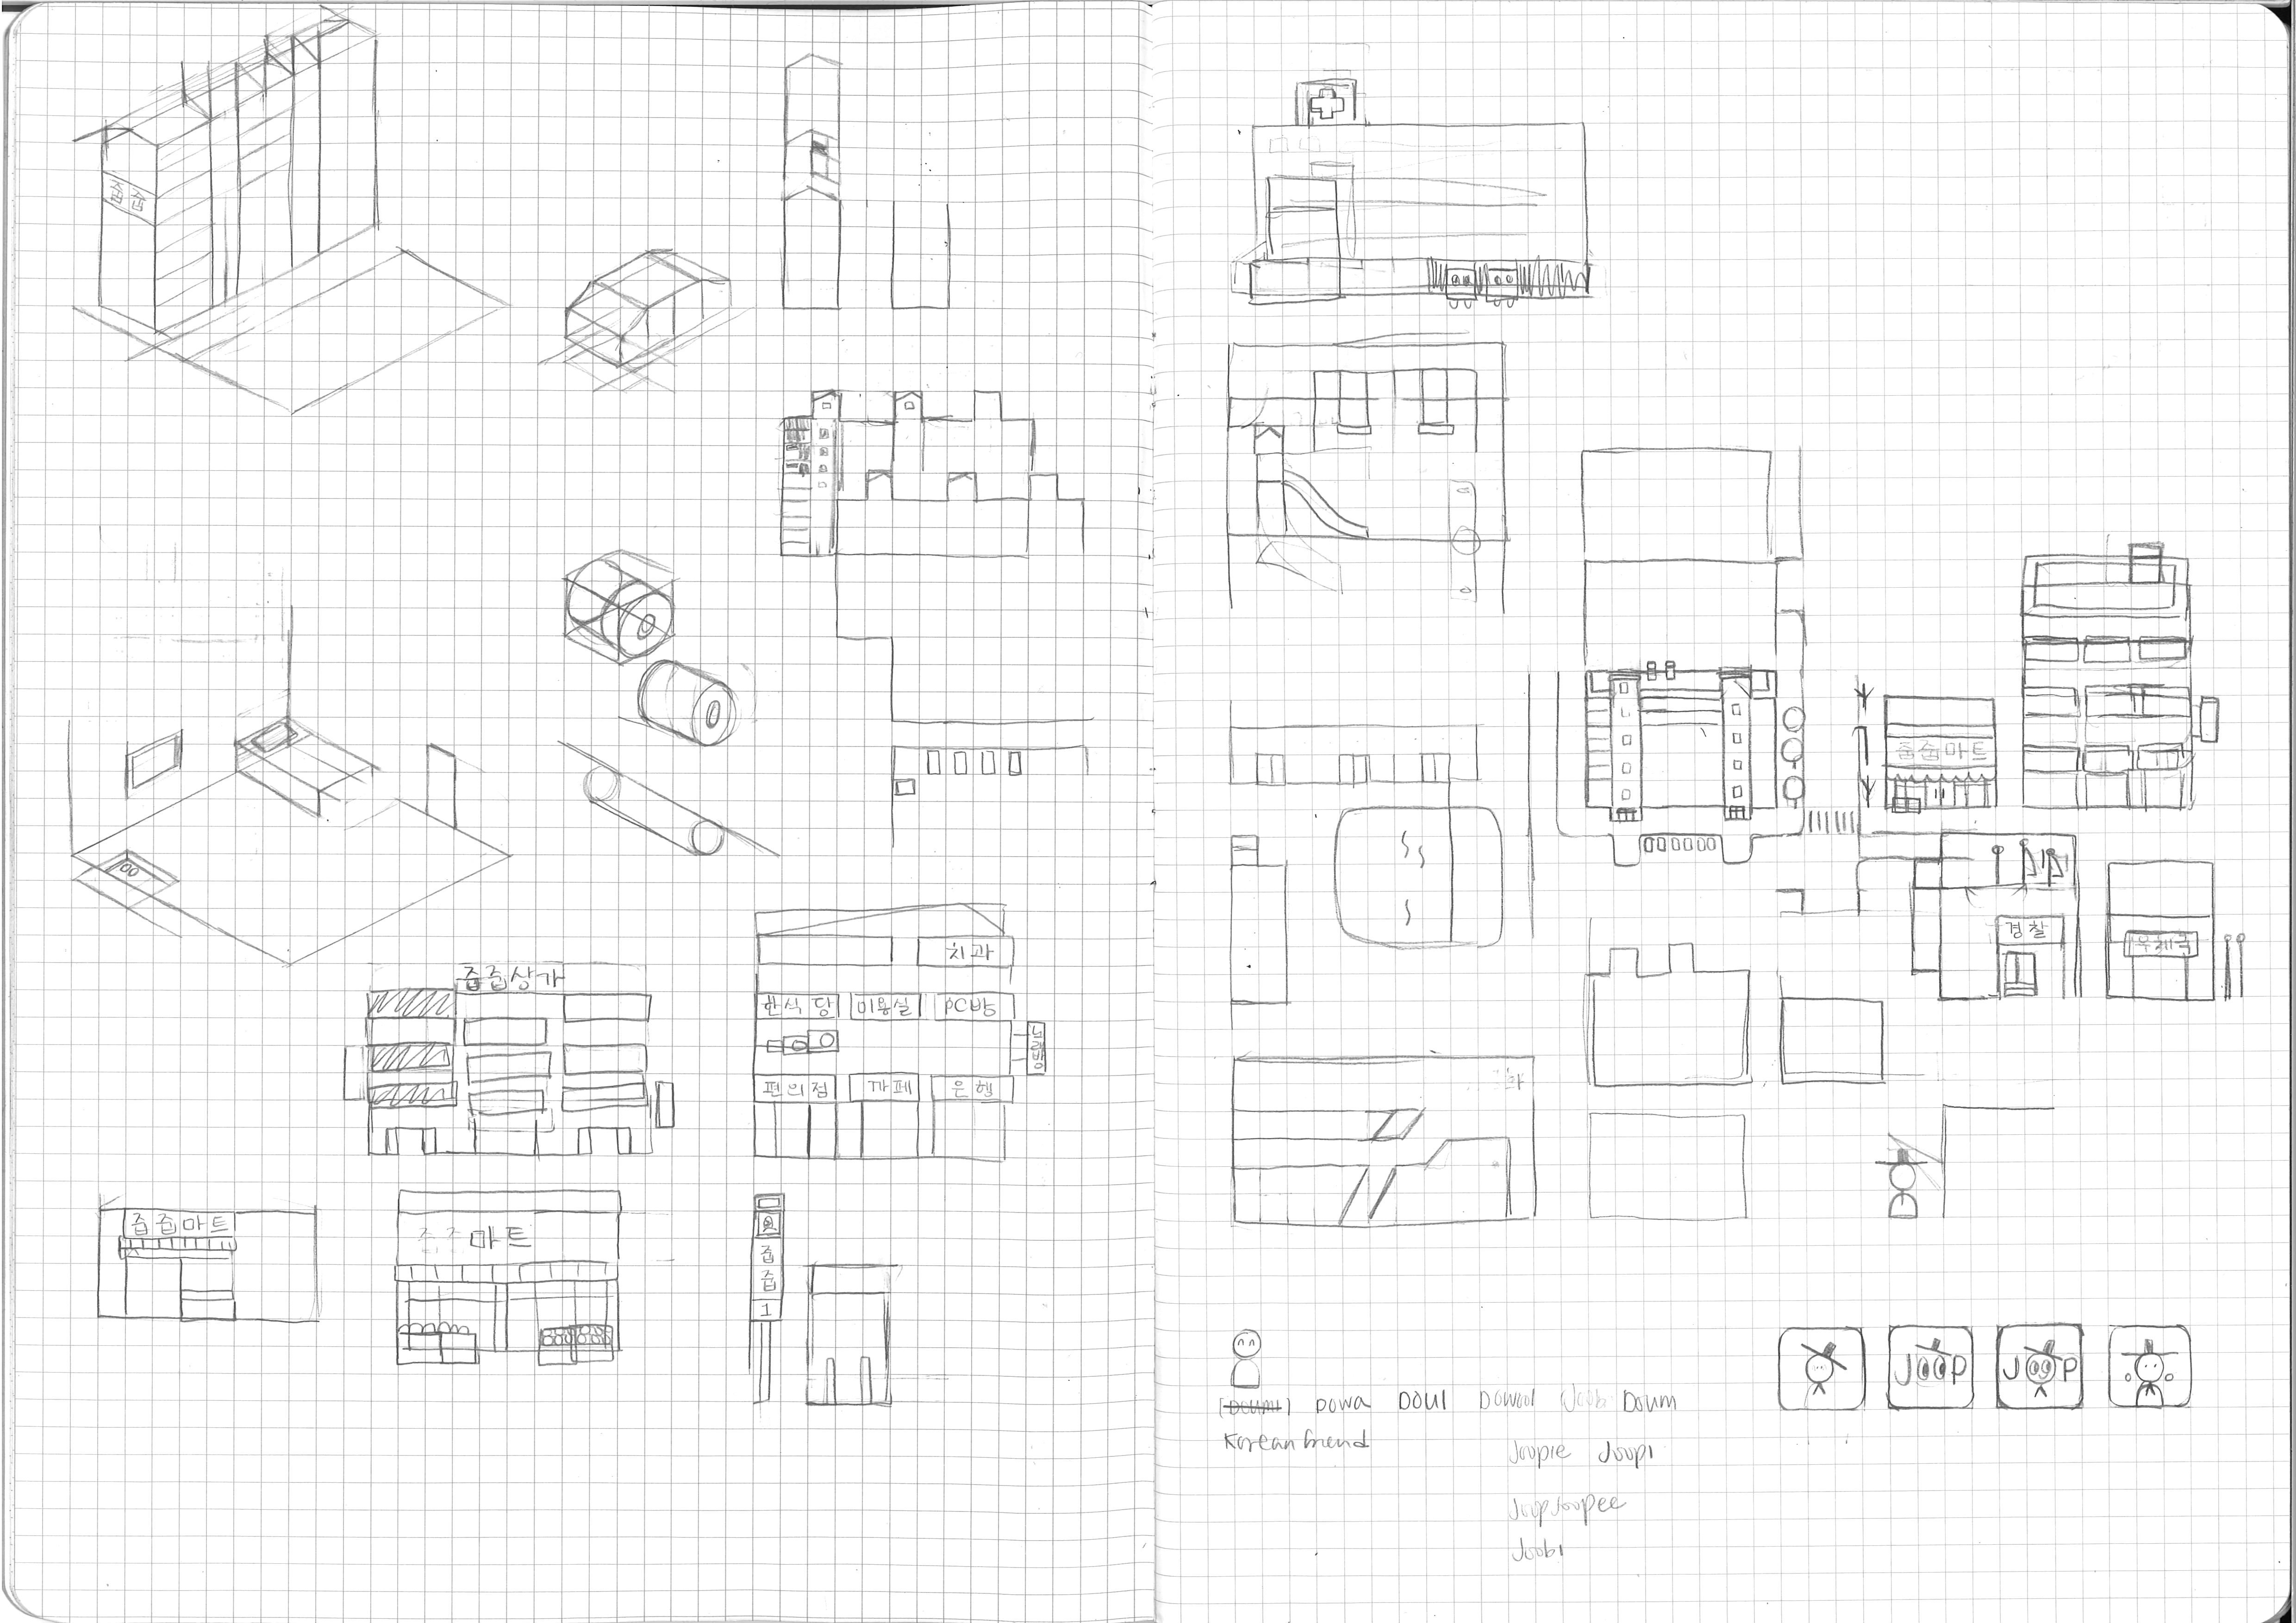 줍줍
줍줍상가
치과
한식당 미용실 PC방
노래방
편의점 까페 은행
줍줍마트
줍줍마트
줍
줍
1
줍줍마트
경찰
우체국
[Doumi] Dowa Doul Dowool Joob Doum
Korean friend
Joopie Joopi
JoopJoopee
Joobi
JOOP JOOP